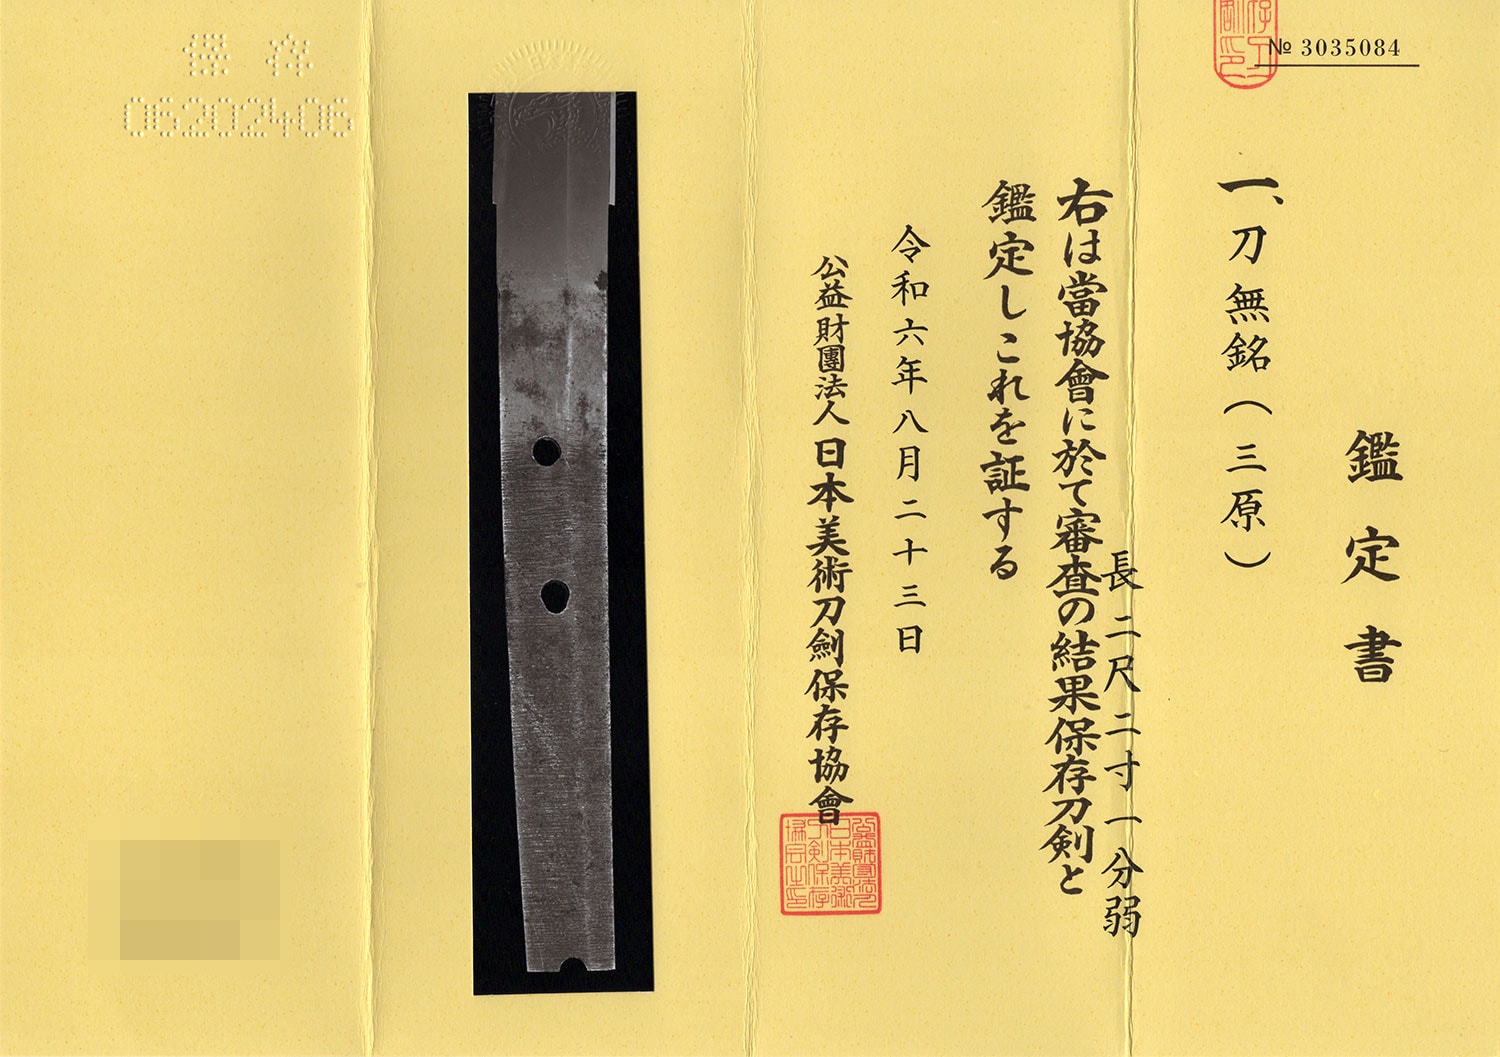 № 3035084
鑑定書
一、刀 無銘(三原)
長 二尺二寸一分弱
右は當協會に於て審査の結果保存刀剣と
鑑定しこれを証する
令和六年八月二十三日
公益財團法人 日本美術刀劍保存協會
保存
06202406